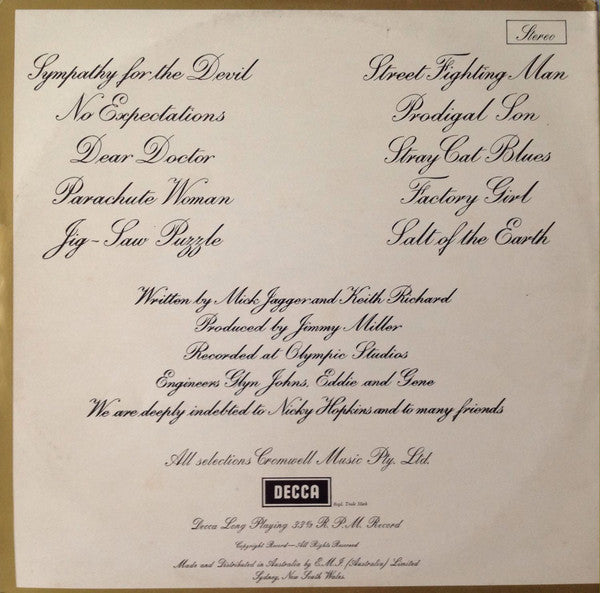 Stereo
Sympathy for the Devil
No Expectations
Dear Doctor
Parachute Woman
Jig-Saw Puzzle
Street Fighting Man
Prodigal Son
Stray Cat Blues
Factory Girl
Salt of the Earth
Written by Mick Jagger and Keith Richard
Produced by Jimmy Miller
Recorded at Olympic Studios
Engineers Glyn Johns, Eddie and Gene
We are deeply indebted to Nicky Hopkins and to many friends
All selections Cromwell Music Pty. Ltd.
DECCA
Regd. Trade Mark
Decca Long Playing 33⅓ R.P.M. Record
Copyright Record—All Rights Reserved
Made and Distributed in Australia by E.M.I. (Australia) Limited
Sydney, New South Wales.